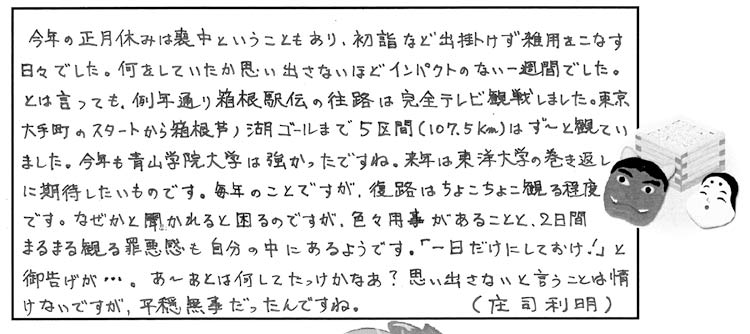 今年の正月休みは喪中ということもあり、初詣など出掛けず雑用をこなす
日々でした。何をしていたか思い出さないほどインパクトのない一週間でした。
とは言っても、例年通り箱根駅伝の往路は完全テレビ観戦しました。東京
大手町のスタートから箱根芦ノ湖ゴールまで5区間(107.5km)はず〜と観てい
ました。今年も青山学院大学は強かったですね。来年は東洋大学の巻き返し
に期待したいものです。毎年のことですが、復路はちょこちょこ観る程度
です。なぜかと聞かれると困るのですが、色々用事があることと、2日間
まるまる観る罪悪感も自分の中にあるようです。「一日だけにしておけ!」と
御告げが…。あ〜あとは何してたっけかなあ?思い出さないと言うことは情
けないですが、平穏無事だったんですね。(庄司利明)